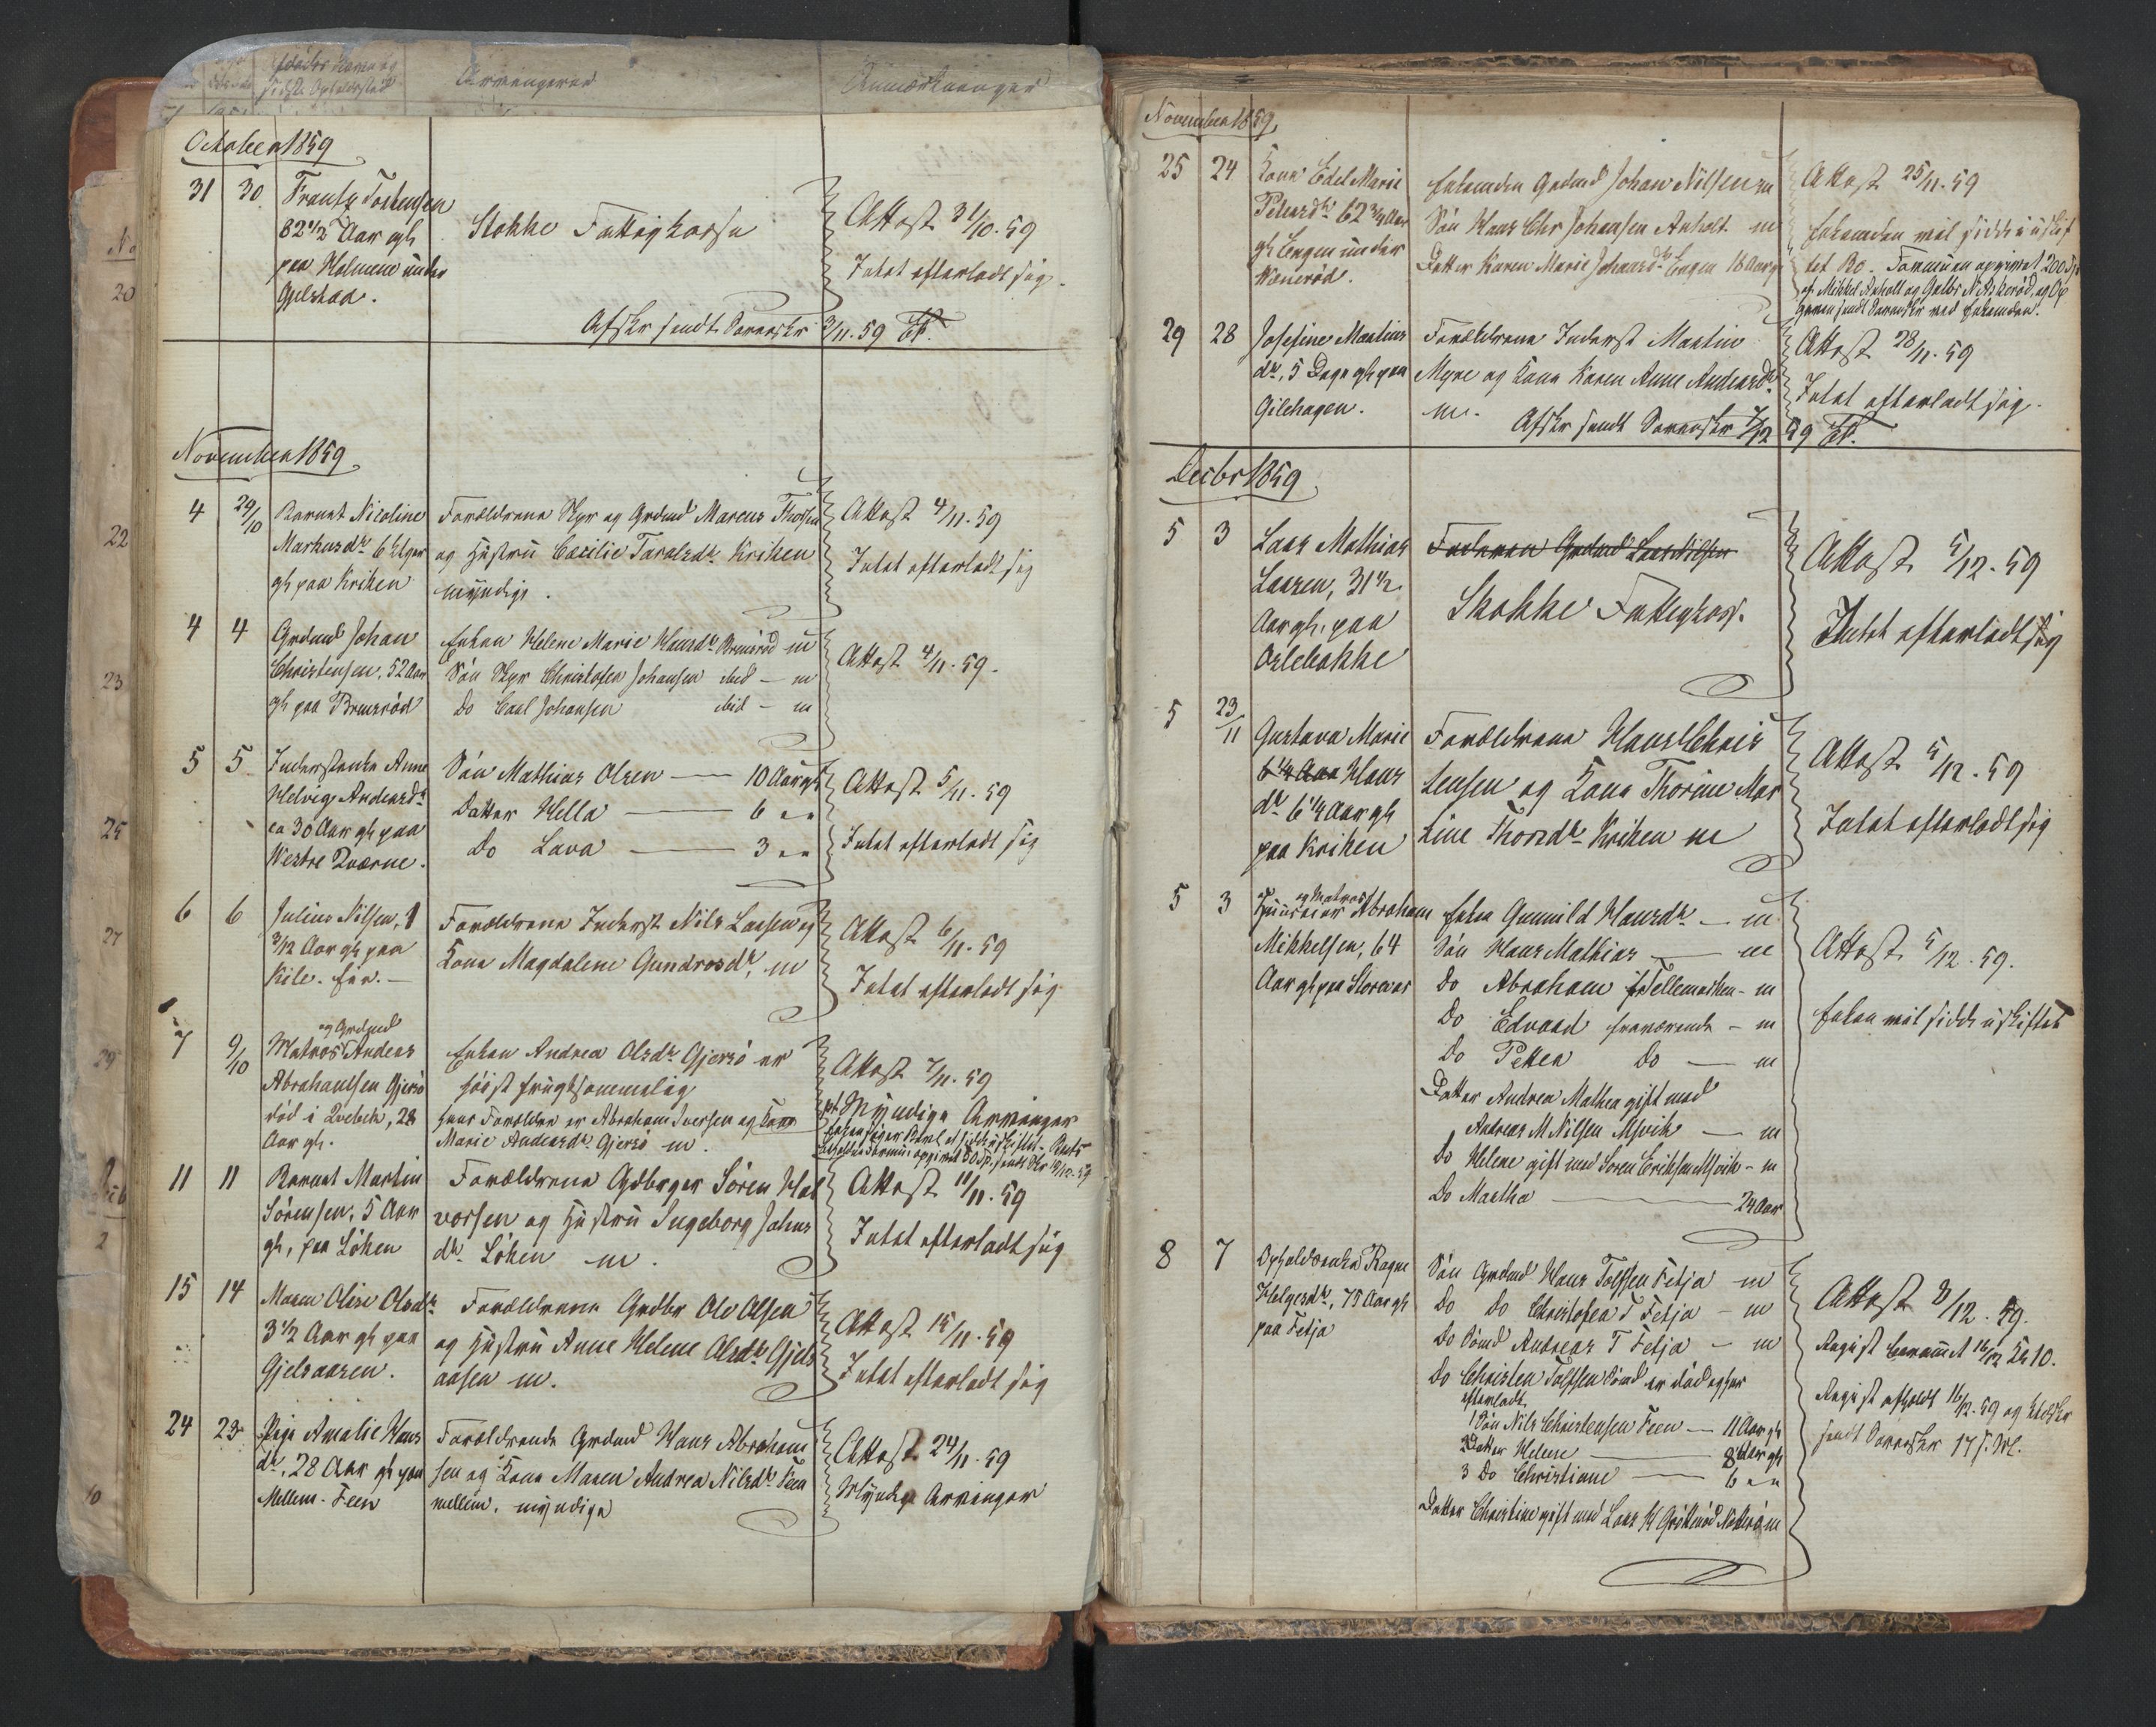 Afdødes Navn og
sidste Opholdssted
Arvingerne
Anmærkninger
October 1859
31 30 Frantz Tostensen
82 1/2 Aar gl
paa Holmene under
Gjelstad.
Stokke Fattigkasse
Attest 31/10.59
Intet efterladt sig.
Afskr sendt Sorenskr 3/11.59
November 1859
4 29/10 Barnet Nicoline
Markusdr 6 Uger
gl paa Kriken
Forældrene Skpr og Grdmd Marcus Thorsen
og Hustru Cæcilie Taraldsdr Kriken
myndige.
Attest 4/11.59
Intet efterladt sig
4 4 Grdmd Johan
Christensen, 52 Aar
gl paa Bruserød
Enken Helene Marie Hansdr Bruserød m
Søn Skpr Christofer Johansen ibid — m
Do Carl Johansen ibid — m
Attest 4/11.59.
5 5 Inderstenke Anne
Helvig Andersdr
ca 30 Aar gl paa
Westre Qværne.
Søn Mathias Olsen — 10 Aar gl
Datter Hella — 6 " "
Do Lava — 3 " "
Attest 5/11.59
Intet efterladt sig
6 6 Julius Nilsen, 1
3/12 Aar gl paa
Kile.
Forældrene Inderst Nils Larsen og
Kone Magdalene Gundrosdr, m
Attest 6/11.59
Intet efterladt sig
7 9/10 og Grdmd
Matros Anders
Abrahamsen Gjersø
død i Qvebek, 28
Aar gl.
Enken Andrea Olsdr Gjersø er
høist frugtsommelig
hans Forældre er Abraham Iversen og Kone
Marie Andersdr Gjersø m.
Attest 7/11.59
Myndige Arvinger
11 11 Barnet Martin
Sørensen, 5 Aar
gl, paa Løken
Forældrene Gdbrger Søren Hal
vorsen og Hustru Ingeborg Johns
dr Løken m.
Attest 11/11.59
Intet efterladt sig
15 14 Maren Olise Olsdr
3 1/2 Aar gl paa
Gjelsaasen.
Forældrene Grdbr Ole Olsen
og Hustru Anne Helene Olsdr Gjels
aasen m.
Attest 15/11.59
Intet efterladt sig
24 23 Pige Amalie Hans
dr, 28 Aar gl paa
Mellem-Feen
Forældrende Grdmd Hans Abraham
sen og Kone Maren Andrea Nilsdr Feen
mellem. myndige
Attest 24/11.59
Myndige Arvinger
November 1859
25 24 Kone Edel Marie
Pedersdr 62 3/4 Aar
gl Engen under
Wonerød.
Enkemden Grdmd Johan Nilsen m
Søn Hans Chr Johansen Anholt m
Datter Karen Marie Johansdr Engen 18 Aar gl
Attest 25/11.59
Enkemden vil sidde i uskif
tet Bo. Formuen opgivet 200 Spd
af Mikkel Anholt og
sendt Sorenskr ved Enkemden.
29 28 Josefine Martins
dr, 5 Dage gl paa
Gilehagen.
Forældrene Inderst Martin
Myre og Kone Karen Anne Andersdr
m.
Attest 28/11.59
Intet efterladt sig.
Afskr sendt Sorenskr 7/12 59
Decbr 1859
5 3 Lars Mathias
Larsen, 31 1/2
Aar gl, paa
Oslebakke
Faderen Grdmd Lars Nilsen
Stokke Fattigkass.
Attest 5/12.59
Intet efterladt sig
5 23/11 Gustava Marie
6 1/4 Aar Hans
dr 6 1/4 Aar gl
paa Kriken
Forældrene Hans Chris
tensen og Kone Thorine Mar
tine Thorsdr Kriken m
Attest 5/12.59
Intet efterladt sig
5 3 og Matros
Huuseier Abraham
Mikkelsen, 64
Aar gl paa Storevar
Enke Gunnild Hansdr — m
Søn Hans Mathias — m
Do Abraham i Tellemarken - m
Do Edvard fraværende - m
Do Petter Do — m
Datter Andrea Mathea gift med
Andreas M Nilsen Msvik — m
Do Helene gift med Soren Eriksen Msvik - m
Do Martha — 24 Aar
Attest 5/12.59.
Enken vil sidde uskiftet
8 7 Opholdsenke Ragne
Helgesdr, 75 Aar gl
paa Fetja
Søn Grdmd Hans Tolfsen Fetja m
Do Do Christofer T Fetja - m
Do Sømd Andreas T Fetja - m
Do Christen Tolfsen Sømd er død og har
efterladt.
1 Søn Nils Christensen Feen — 11 Aar gl
2 Datter Helene — 8 Aar gl
3 Do Christiane — 6 " "
Datter Christine gift med Lars H Grøtterød Nøtterø m
Attest 8/12.59.
Regist berammet 16/12 Kl 10.
Regist afholdt 16/12.59 og Udskr
sendt Sorenskr 17 s. M.